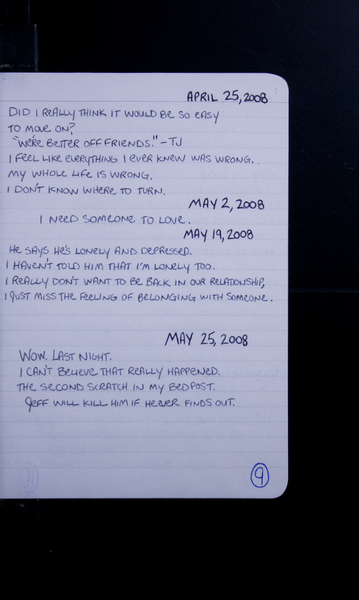 APRIL 25, 2008
DID I REALLY THINK IT WOULD BE SO EASY
TO MOVE ON?
"WE'RE BETTER OFF FRIENDS." - TJ
I FEEL LIKE EVERYTHING I EVER KNEW WAS WRONG.
MY WHOLE LIFE IS WRONG.
I DON'T KNOW WHERE TO TURN.
MAY 2, 2008
I NEED SOMEONE TO LOVE.
MAY 19, 2008
HE SAYS HE'S LONELY AND DEPRESSED.
I HAVEN'T TOLD HIM THAT I'M LONELY TOO.
I REALLY DON'T WANT TO BE BACK IN OUR RELATIONSHIP,
I JUST MISS THE FEELING OF BELONGING WITH SOMEONE.
MAY 25, 2008
WOW. LAST NIGHT.
I CAN'T BELIEVE THAT REALLY HAPPENED.
THE SECOND SCRATCH IN MY BEDPOST.
JEFF WILL KILL HIM IF HE EVER FINDS OUT.
9